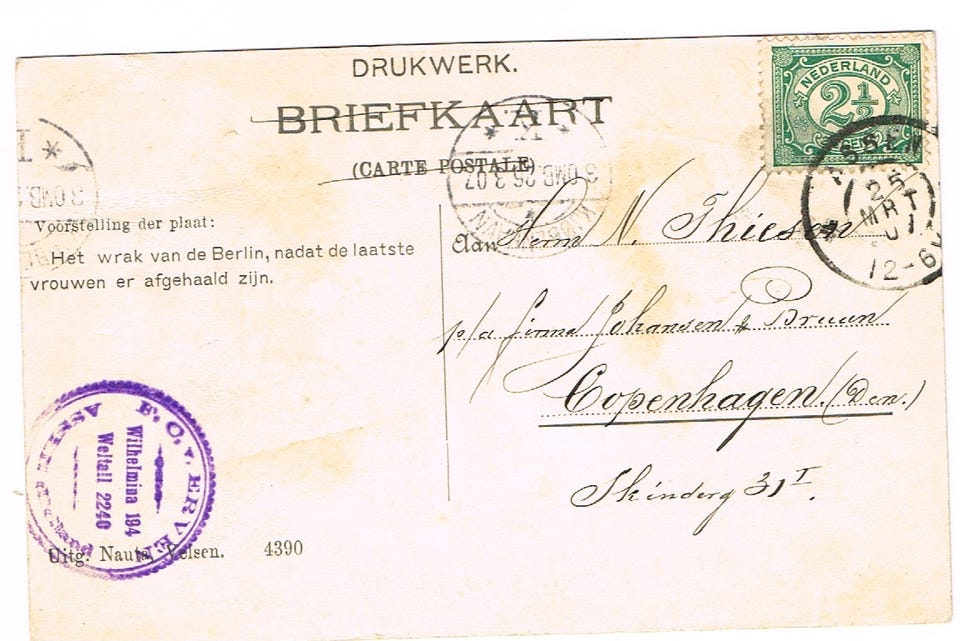 DRUKWERK.
BRIEFKAART
(CARTE POSTALE)
NEDERLAND
2½
CENT
ASSEN
25
MRT
12-6
K.
3 OMB. 26.3.07
3 OMB.
Voorstelling der plaat:
Het wrak van de Berlin, nadat de laatste
vrouwen er afgehaald zijn.
Aan Herrn N. Thiesen
p/a firma Johansen & Bruun
Copenhagen. (Den.)
Skinderg 31 I.
F. O. v. ERVEN
ASSEN
Wilhelmina 194
Weltall 2240
Uitg. Nauta, Velsen. 4390